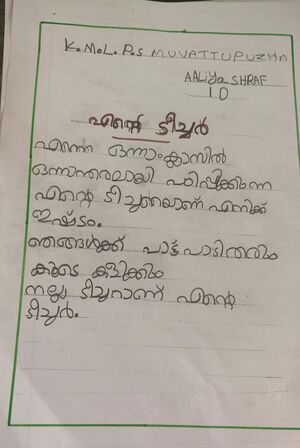 K.M.L.P.S MUVATTUPUZHA
AALiya SHRAF
1 D
എന്റെ ടീച്ചർ
എന്നെ ഒന്നാംക്ലാസിൽ
ഒന്നാന്തരമായി പഠിപ്പിക്കുന്ന
എന്റെ ടീച്ചറെയാണ് എനിക്ക്
ഇഷ്ടം.
ഞങ്ങൾക്ക് പാട്ട് പാടിതരും
കൂടെ കളിക്കും
നല്ല ടീച്ചറാണ് എന്റെ
ടീച്ചർ.